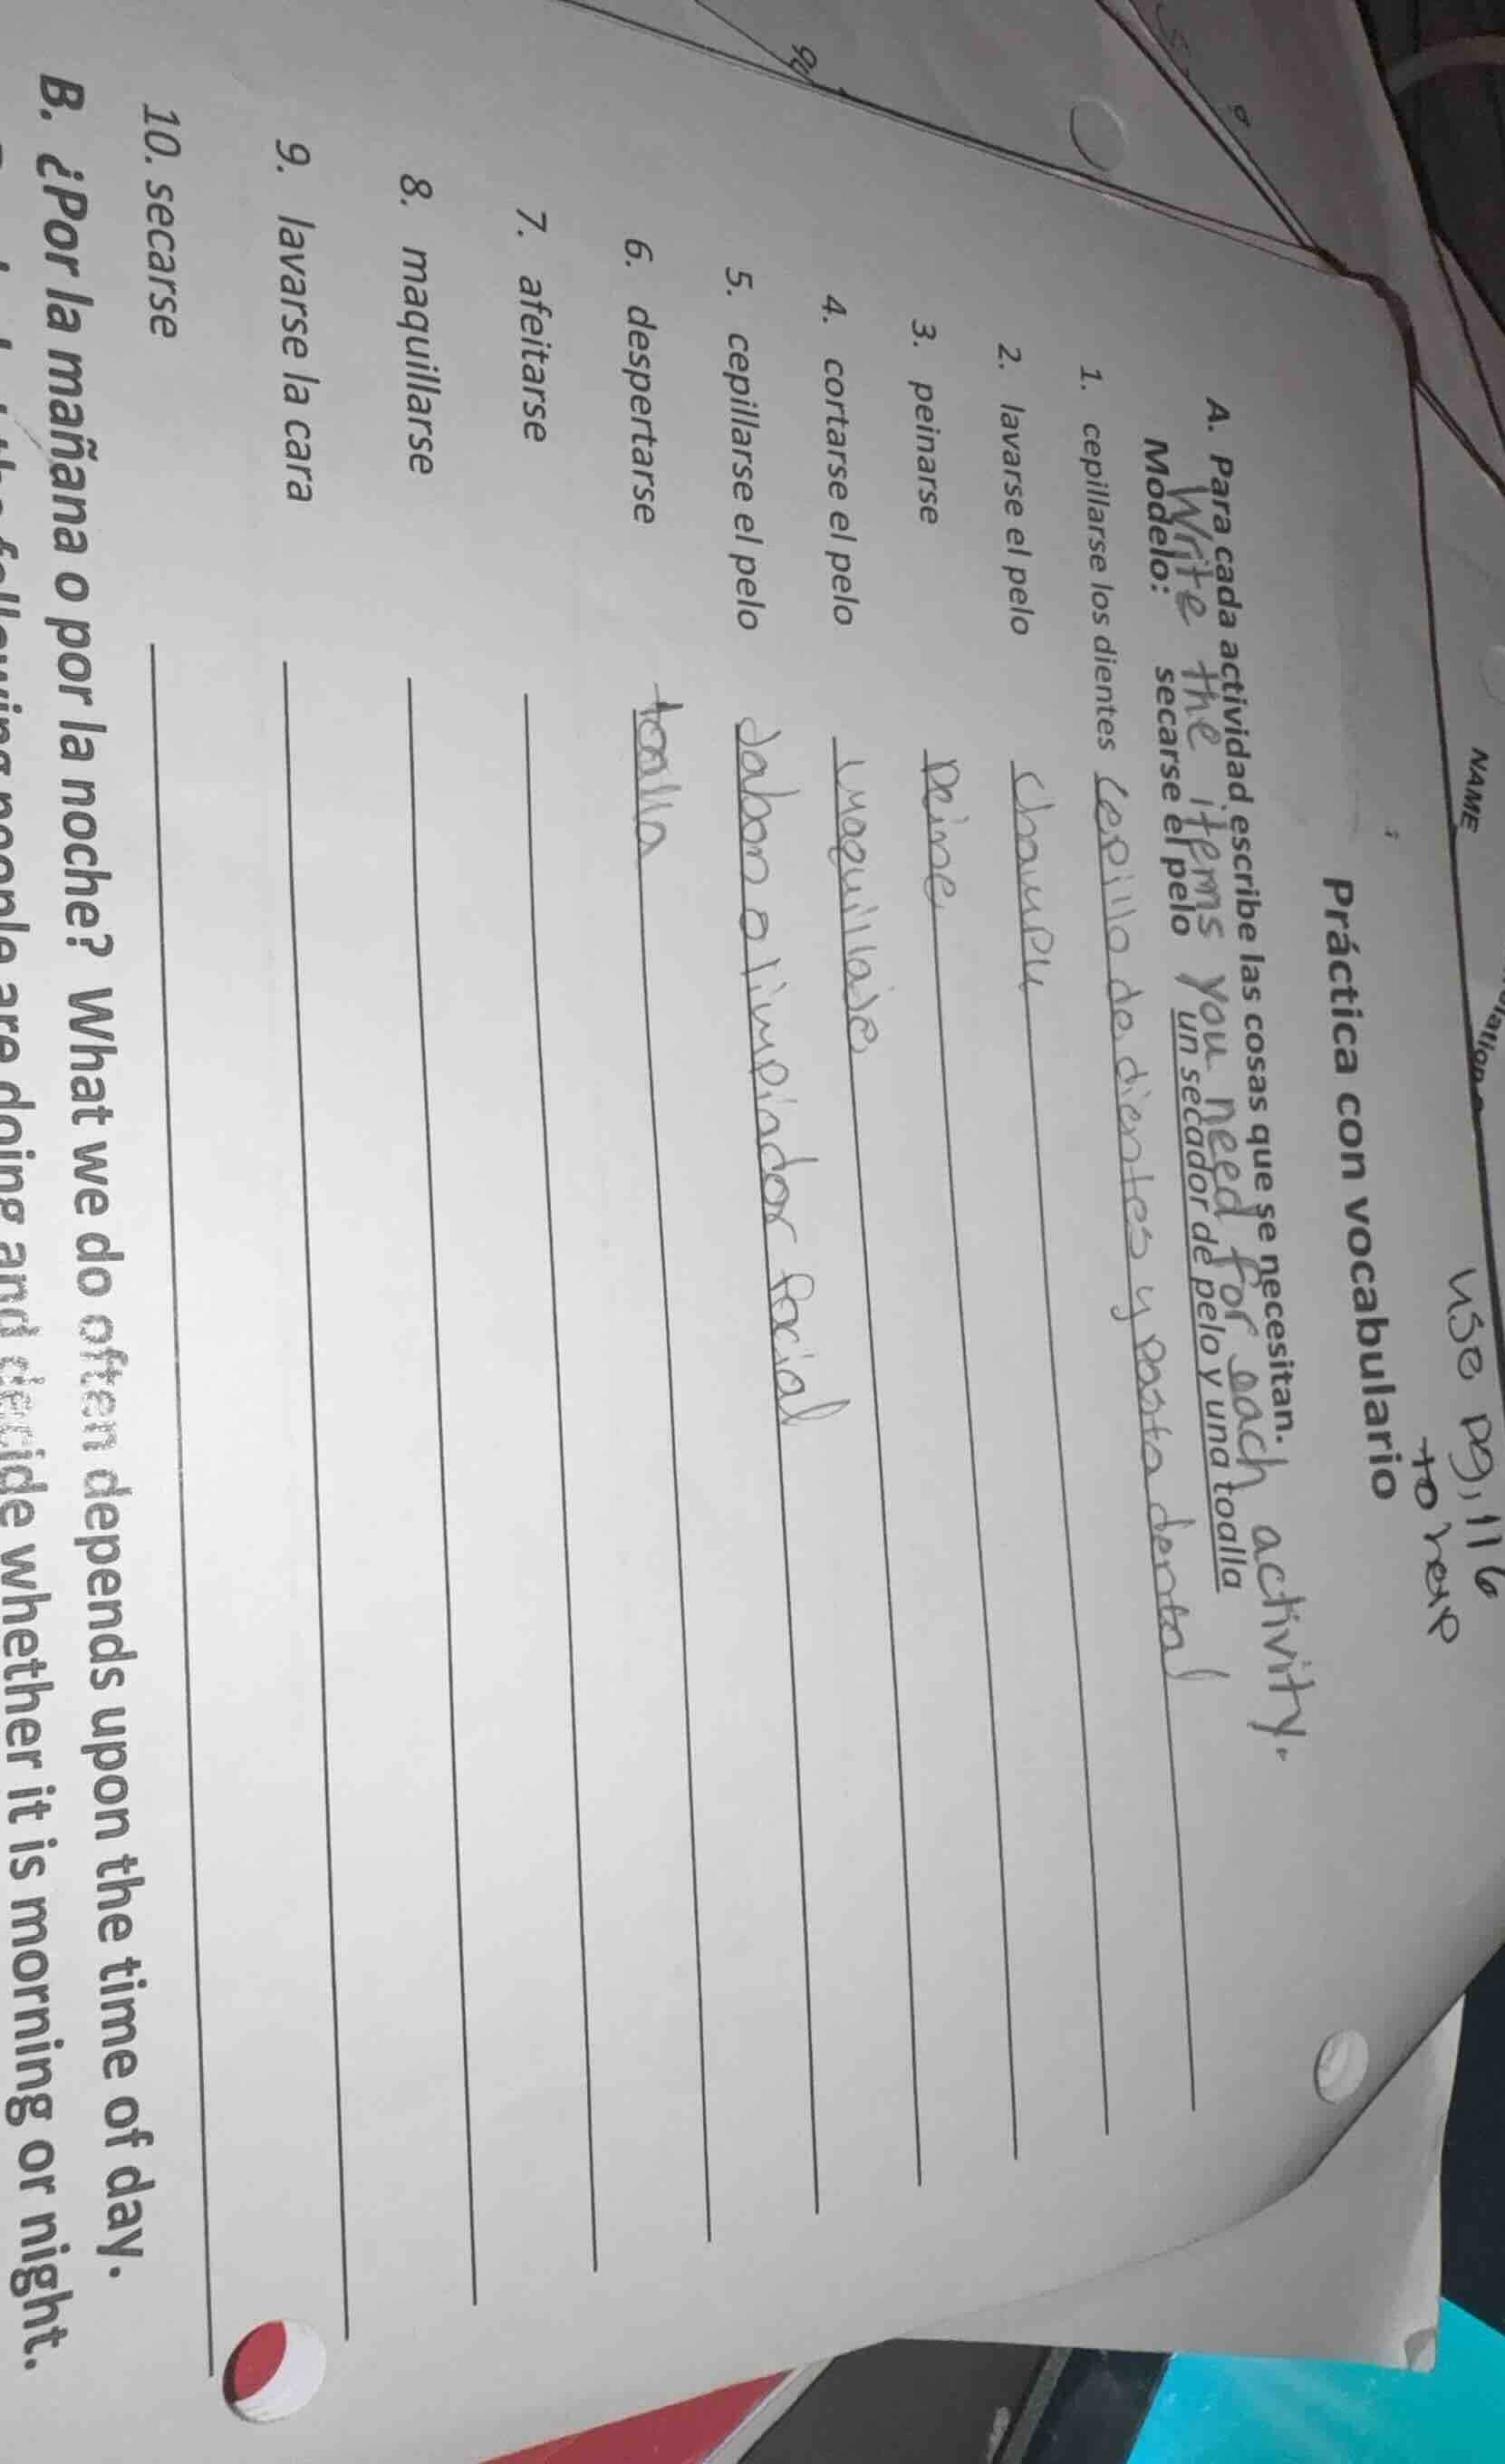 NAME
use pg. 116
to help
Práctica con vocabulario
A. Para cada actividad escribe las cosas que se necesitan.
Write the items you need for each activity.
Modelo: secarse el pelo un secador de pelo y una toalla
1. cepillarse los dientes cepillo de dientes y pasta dental
2. lavarse el pelo champu
3. peinarse peine
4. cortarse el pelo maquillaje
5. cepillarse el pelo Jabon o limpiador facial
6. despertarse toalla
7. afeitarse
8. maquillarse
9. lavarse la cara
10. secarse
B. ¿Por la mañana o por la noche? What we do often depends upon the time of day.
following people are doing and decide whether it is morning or night.